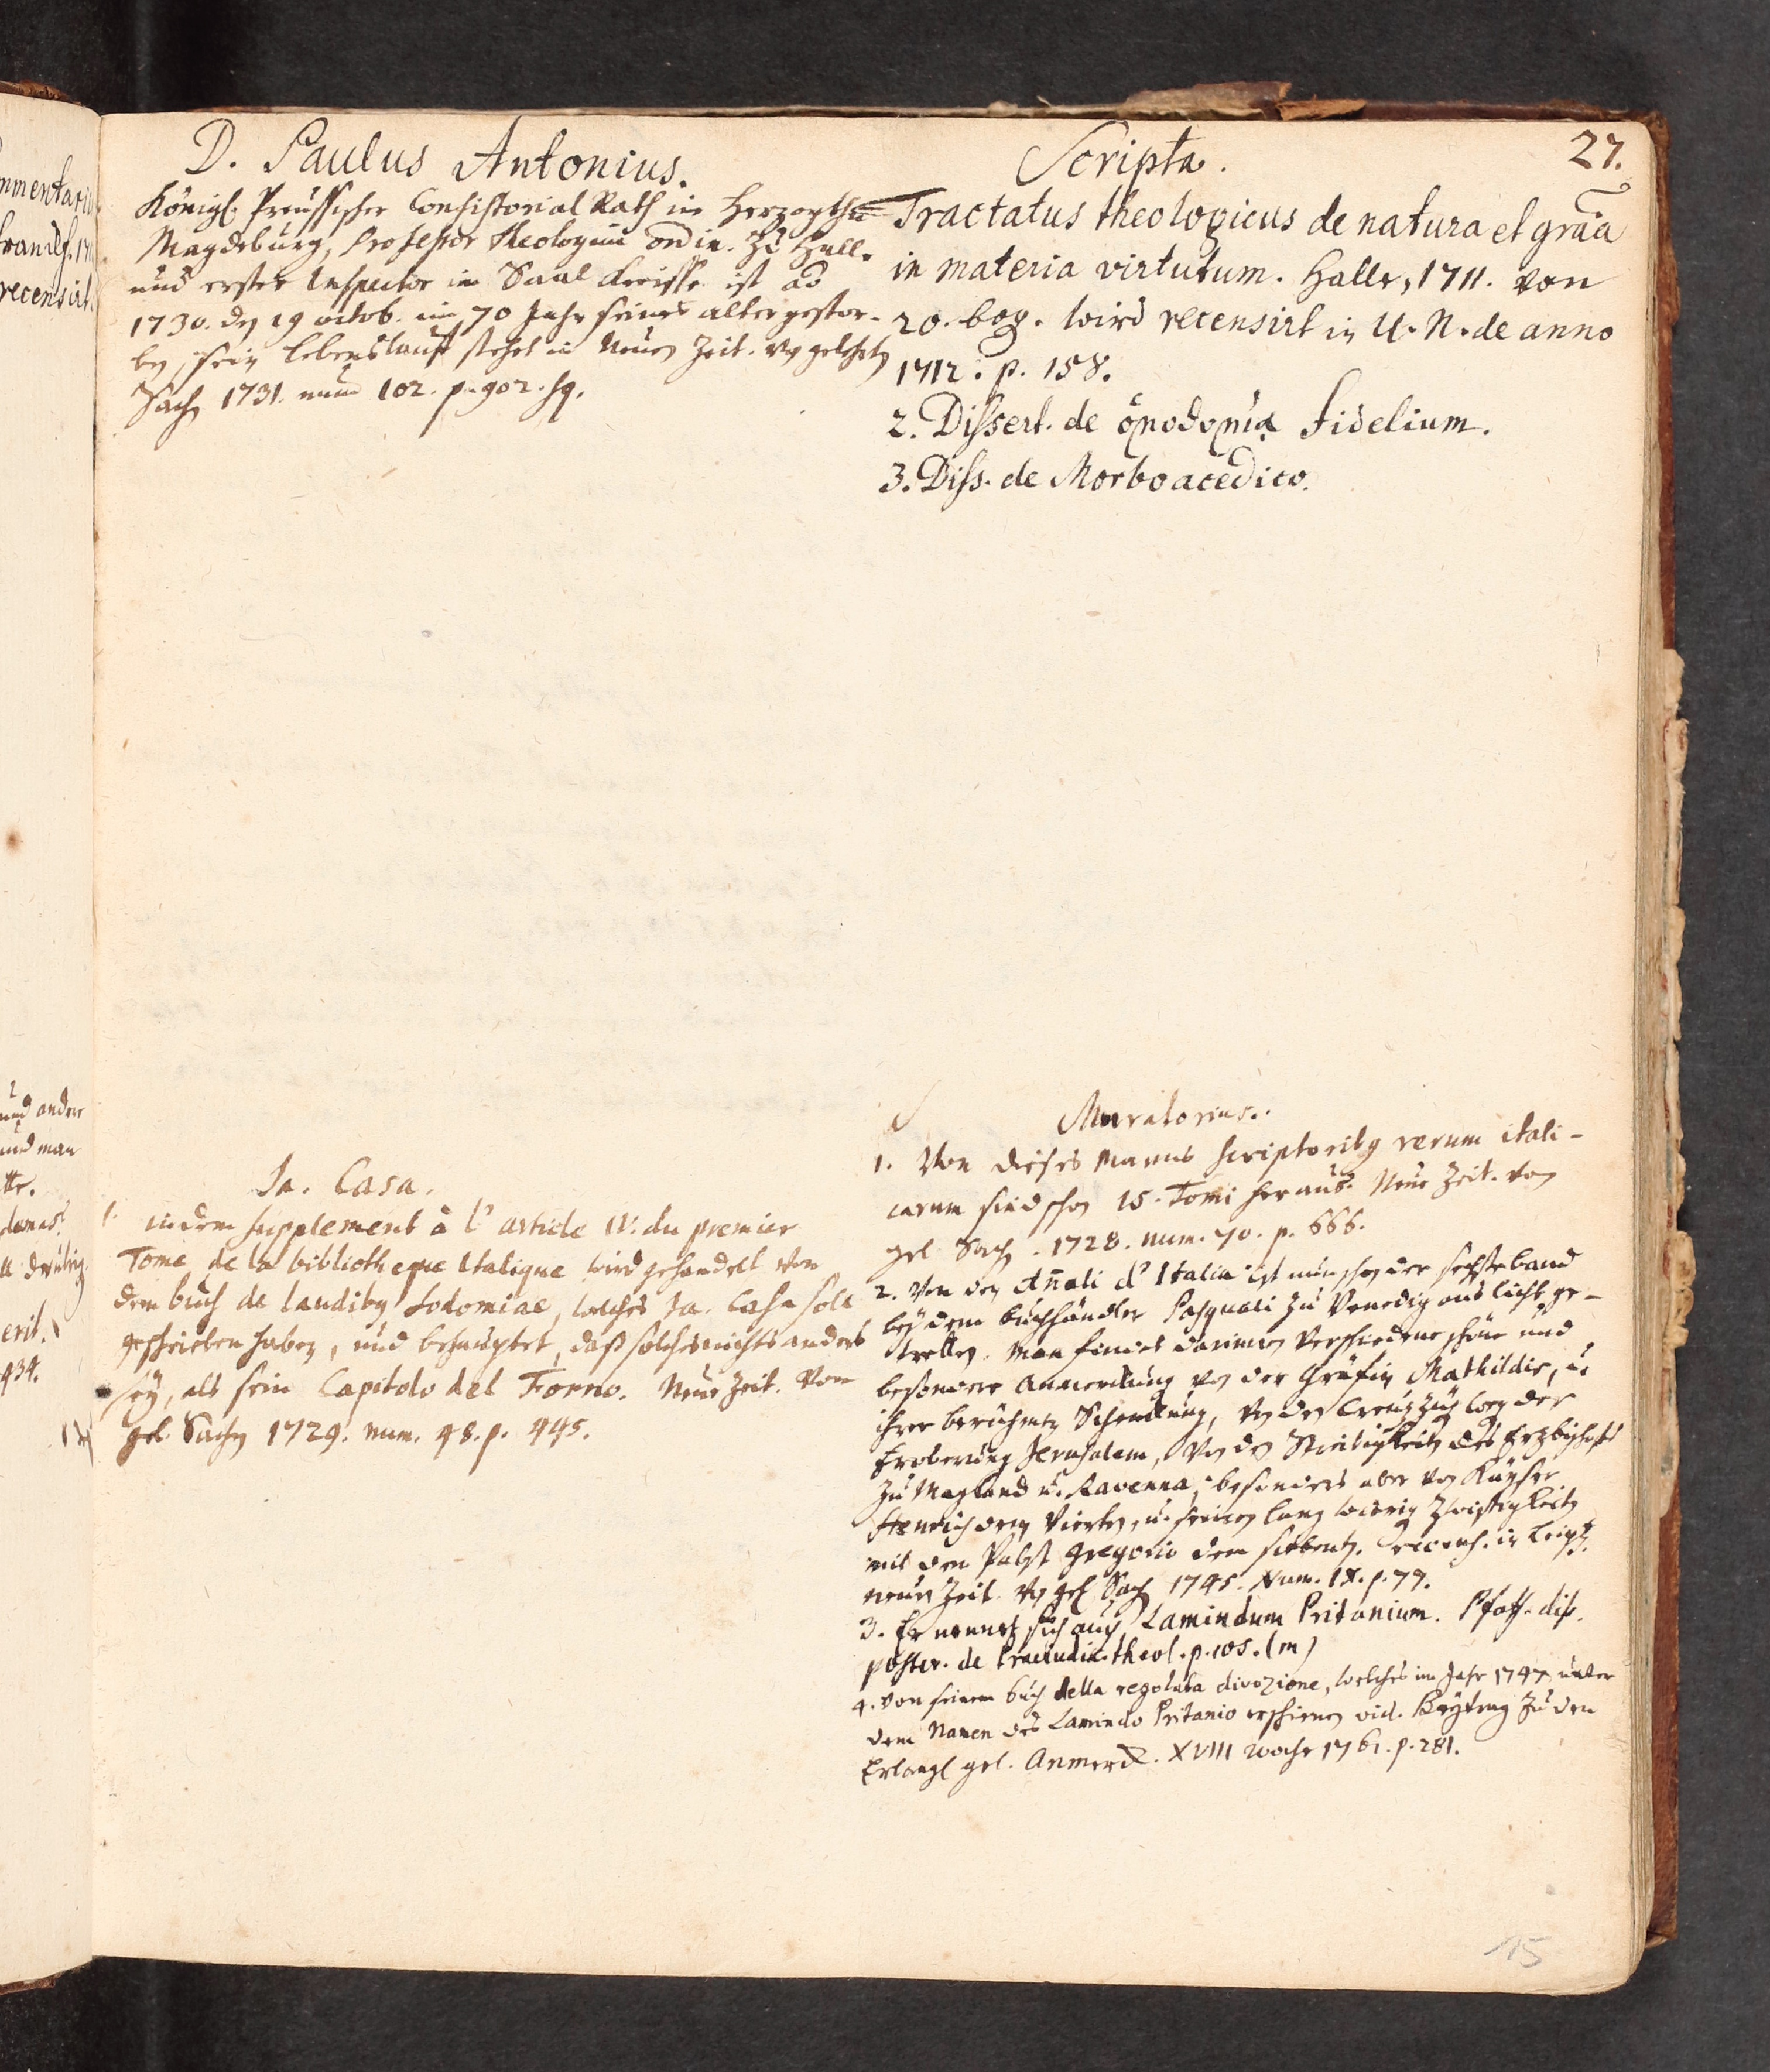 27.
D. Paulus Antonius.
Königl. Preussischer Consistorial Rath im Herzogthu
Magdeburg, Professor Theologiae ordin. zu Halle
und erster Inspector im Saal Kreisse ist ao
1730. den 19 octob. im 70 Jahr seines alters gestor-
ben, sein Lebenslauff stehet in Neuen Zeit. von gelehrten
Sachen 1731. num 102. p. 902. sq.
Scripta.
Tractatus theologicus de natura et gr͠aa
in materia virtutum. Halle, 1711. von
20. bog. wird recensirt in U. N. de anno
1712. p. 158.
2. Dissert. de fidelium.
3. Diss. de Morbo acedico.
Ja. Casa.
1. in dem supplement à l' article IV. du premier
Tome de la bibliotheque Italique wird gehandelt von
dem buch de laudibus Sodomiae, welches Ja. Casa soll
geschrieben haben, und behauptet, daß solches nichts anders
sey, als sein Capitolo del Forno. Neue Zeit. von
gel. Sachen 1729. num. 48. p. 445.
Muratorius.
1. Von dieses Manns scriptoribus rerum itali-
carum sind schon 15. Tomi heraus. Neue Zeit. von
gel. Sach. 1728. num. 70. p. 666.
2. Von den An̄ali d' Italia ist nun schon der sechste band
bey dem buchhändler Pasquali zu Venedig ans licht ge-
tretten. Man findet darinnen verschiedene schöne und
besondere Anmerckung von der Gräfin Mathildis, u.
ihrer berühmten Schenckung, von den Creuzzügen der
Eroberung Jerusalem, von den Streitigkeiten des Erzbischoffs
zu Mayland u. Ravenna, besonders aber von Kayser
Henrich dem Vierten, u. seinen lang Zwistigkeiten
mit dem Pabst Gregorio dem siebenten. recens. in Leipz.
neuen Zeit. von gel. Sach 1745. Num. IX. p. 77.
3. Er nennet sich auch Lamindum Pritanium. Pfaff. diss.
poster. de Praeiudic. theol. p. 105. (m)
4. von seinem buch della regolata divozione, welches im Jahr 1747. unter
dem Namen des Lamindo Pritanio erschienen vid. Beytrag zu den
Erlang. gel. Anmerck. XVIII woche 1761. p. 281.
15